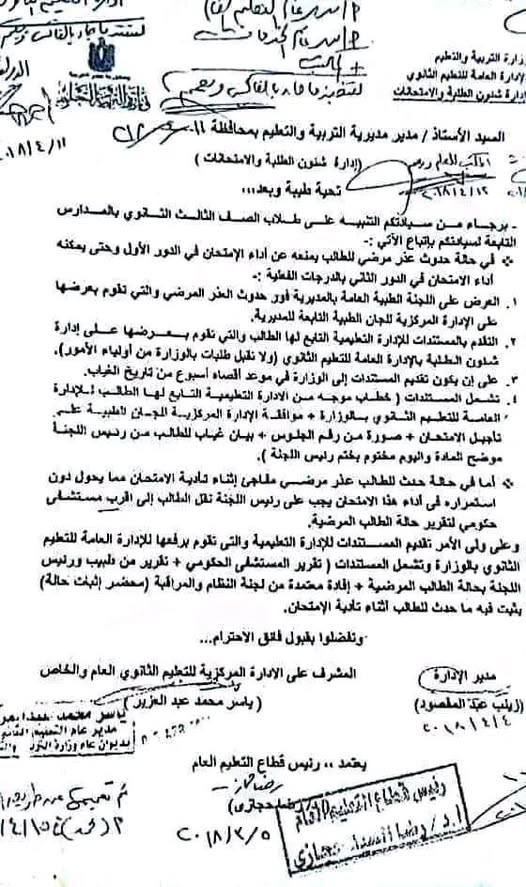 وزارة التربية والتعليم
الإدارة العامة للتعليم الثانوي
إدارة شئون الطلبة والامتحانات
السيد الأستاذ / مدير مديرية التربية والتعليم بمحافظة
( إدارة شئون الطلبة والامتحانات )
٢٠١٨/٤/١١
٢٠١٨/٤/١٢
تحية طيبة وبعد،،،
- برجاء من سيادتكم التنبيه على طلاب الصف الثالث الثانوي بالمدارس
التابعة لسيادتكم بإتباع الآتي :-
❖ في حالة حدوث عذر مرضي للطالب يمنعه عن أداء الإمتحان في الدور الأول وحتى يمكنه
أداء الامتحان في الدور الثاني بالدرجات الفعلية :-
١. العرض على اللجنة الطبية العامة بالمديرية فور حدوث العذر المرضي والتي تقوم بعرضها
على الإدارة المركزية للجان الطبية التابعة للمديرية.
٢. التقدم بالمستندات للإدارة التعليمية التابع لها الطالب والتي تقوم بعرضها على إدارة
شئون الطلبة بالإدارة العامة للتعليم الثانوي (ولا تقبل طلبات بالوزارة من أولياء الأمور).
٣. على إن يكون تقديم المستندات إلى الوزارة في موعد أقصاه أسبوع من تاريخ الغياب.
٤. تشمل المستندات ( خطاب موجه من الادارة التعليمية التابع لها الطالب للإدارة
العامة للتعليم الثانوي بالوزارة + موافقة الإدارة المركزية للجان الطبية على
تأجيل الامتحان + صورة من رقم الجلوس + بيان غياب للطالب من رئيس اللجنة
موضح المادة واليوم مختوم بختم رئيس اللجنة ).
❖ أما في حالة حدث للطالب عذر مرضي مفاجئ إثناء تأدية الامتحان مما يحول دون
استمراره في أداء هذا الامتحان يجب على رئيس اللجنة نقل الطالب إلى اقرب مستشفى
حكومي لتقرير حالة الطالب المرضية.
وعلى ولى الأمر تقديم المستندات للإدارة التعليمية والتى تقوم برفعها للإدارة العامة للتعليم
الثانوي بالوزارة وتشمل المستندات ( تقرير المستشفى الحكومي + تقرير من طبيب ورئيس
اللجنة بحالة الطالب المرضية + إفادة معتمدة من لجنة النظام والمراقبة (محضر إثبات حالة)
يثبت فيه ما حدث للطالب أثناء تأدية الإمتحان.
وتفضلوا بقبول فائق الاحترام...
مدير الإدارة
المشرف على الادارة المركزية للتعليم الثانوي العام والخاص
(زينب عبد المقصود)
( ياسر محمد عبد العزيز )
٢٠١٨/٤/٤
مدير عام التعليم الثانوي
يعتمد ،، رئيس قطاع التعليم العام
(رضا حجازى)
٢٠١٨/٣/٥
رئيس قطاع التعليم العام
أ.د/ رضا السيد حجازى